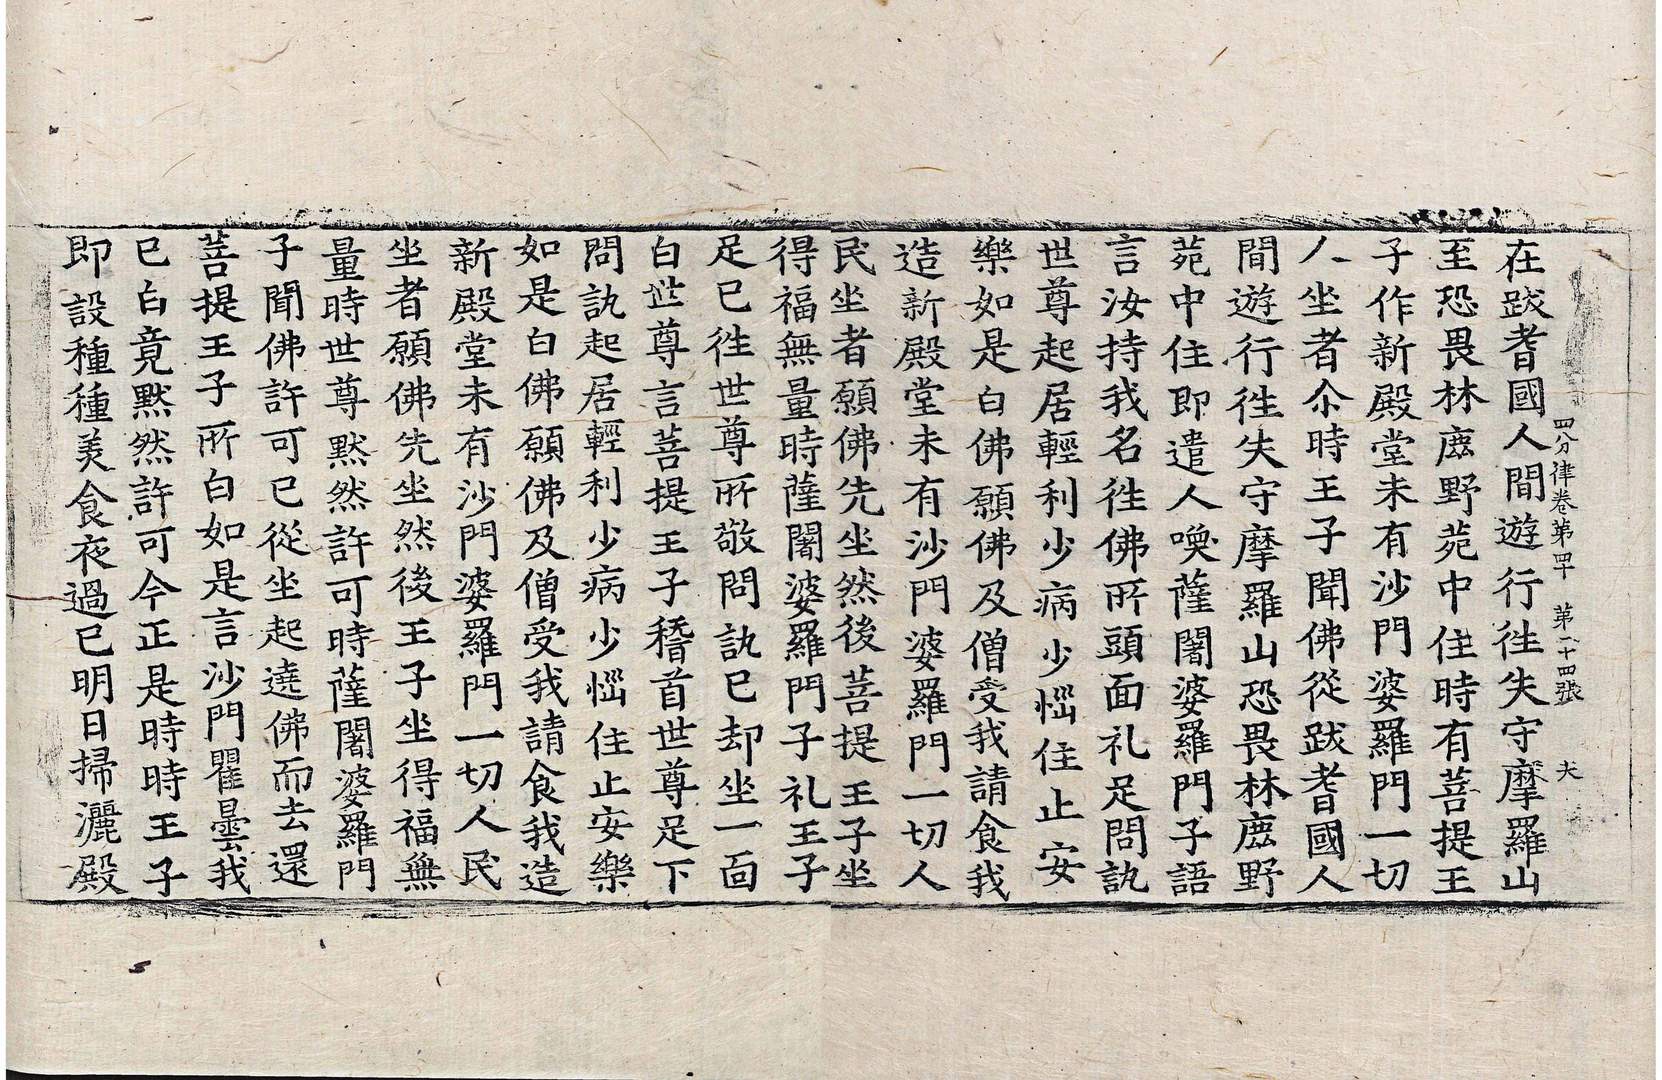 四分律卷第四十　第二十四張　夫
在跋耆國人間遊行徃失守摩羅山
至恐畏林鹿野苑中住時有菩提王
子作新殿堂未有沙門婆羅門一切
人坐者尒時王子聞佛從跋耆國人
間遊行徃失守摩羅山恐畏林鹿野
苑中住即遣人喚薩闍婆羅門子語
言汝持我名徃佛所頭面礼足問訊
世尊起居輕利少病少惱住止安
樂如是白佛願佛及僧受我請食我
造新殿堂未有沙門婆羅門一切人
民坐者願佛先坐然後菩提王子坐
得福無量時薩闍婆羅門子礼王子
足已徃世尊所敬問訊已却坐一面
白世尊言菩提王子稽首世尊足下
問訊起居輕利少病少惱住止安樂
如是白佛願佛及僧受我請食我造
新殿堂未有沙門婆羅門一切人民
坐者願佛先坐然後王子坐得福無
量時世尊默然許可時薩闍婆羅門
子聞佛許可已從坐起遶佛而去還
菩提王子所白如是言沙門瞿曇我
已白竟默然許可今正是時時王子
即設種種美食夜過已明日掃灑殿